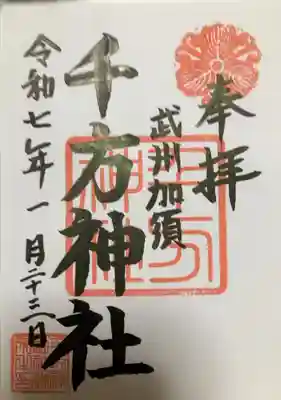 奉拝
武州加須
千方神社
令和七年一月二十三日
千方神社